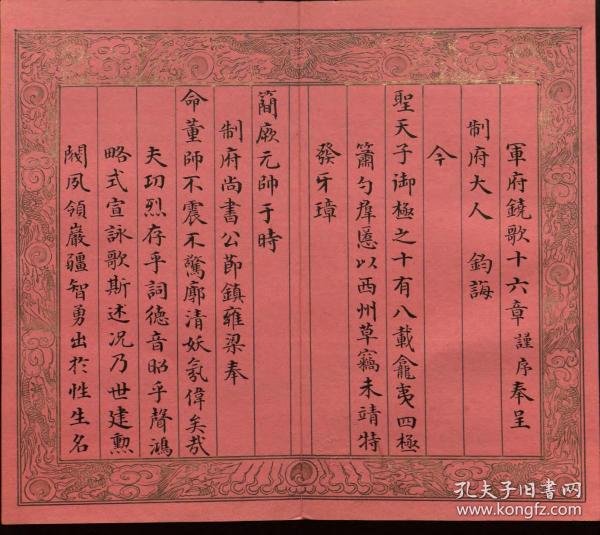 軍府鐃歌十六章謹序奉呈
制府大人　鈞誨
今
聖天子御極之十有八載龕夷四極
簫勺羣慝以西州草竊未靖特
發牙璋
簡厥元帥于時
制府尚書公節鎮雍梁奉
命董師不震不驚廓清妖氛偉矣哉
夫功烈存乎詞德音昭乎聲鴻
略式宣詠歌斯述况乃世建勲
閥夙領巖疆智勇出於性生名
孔夫子旧書网
www.kongfz.com